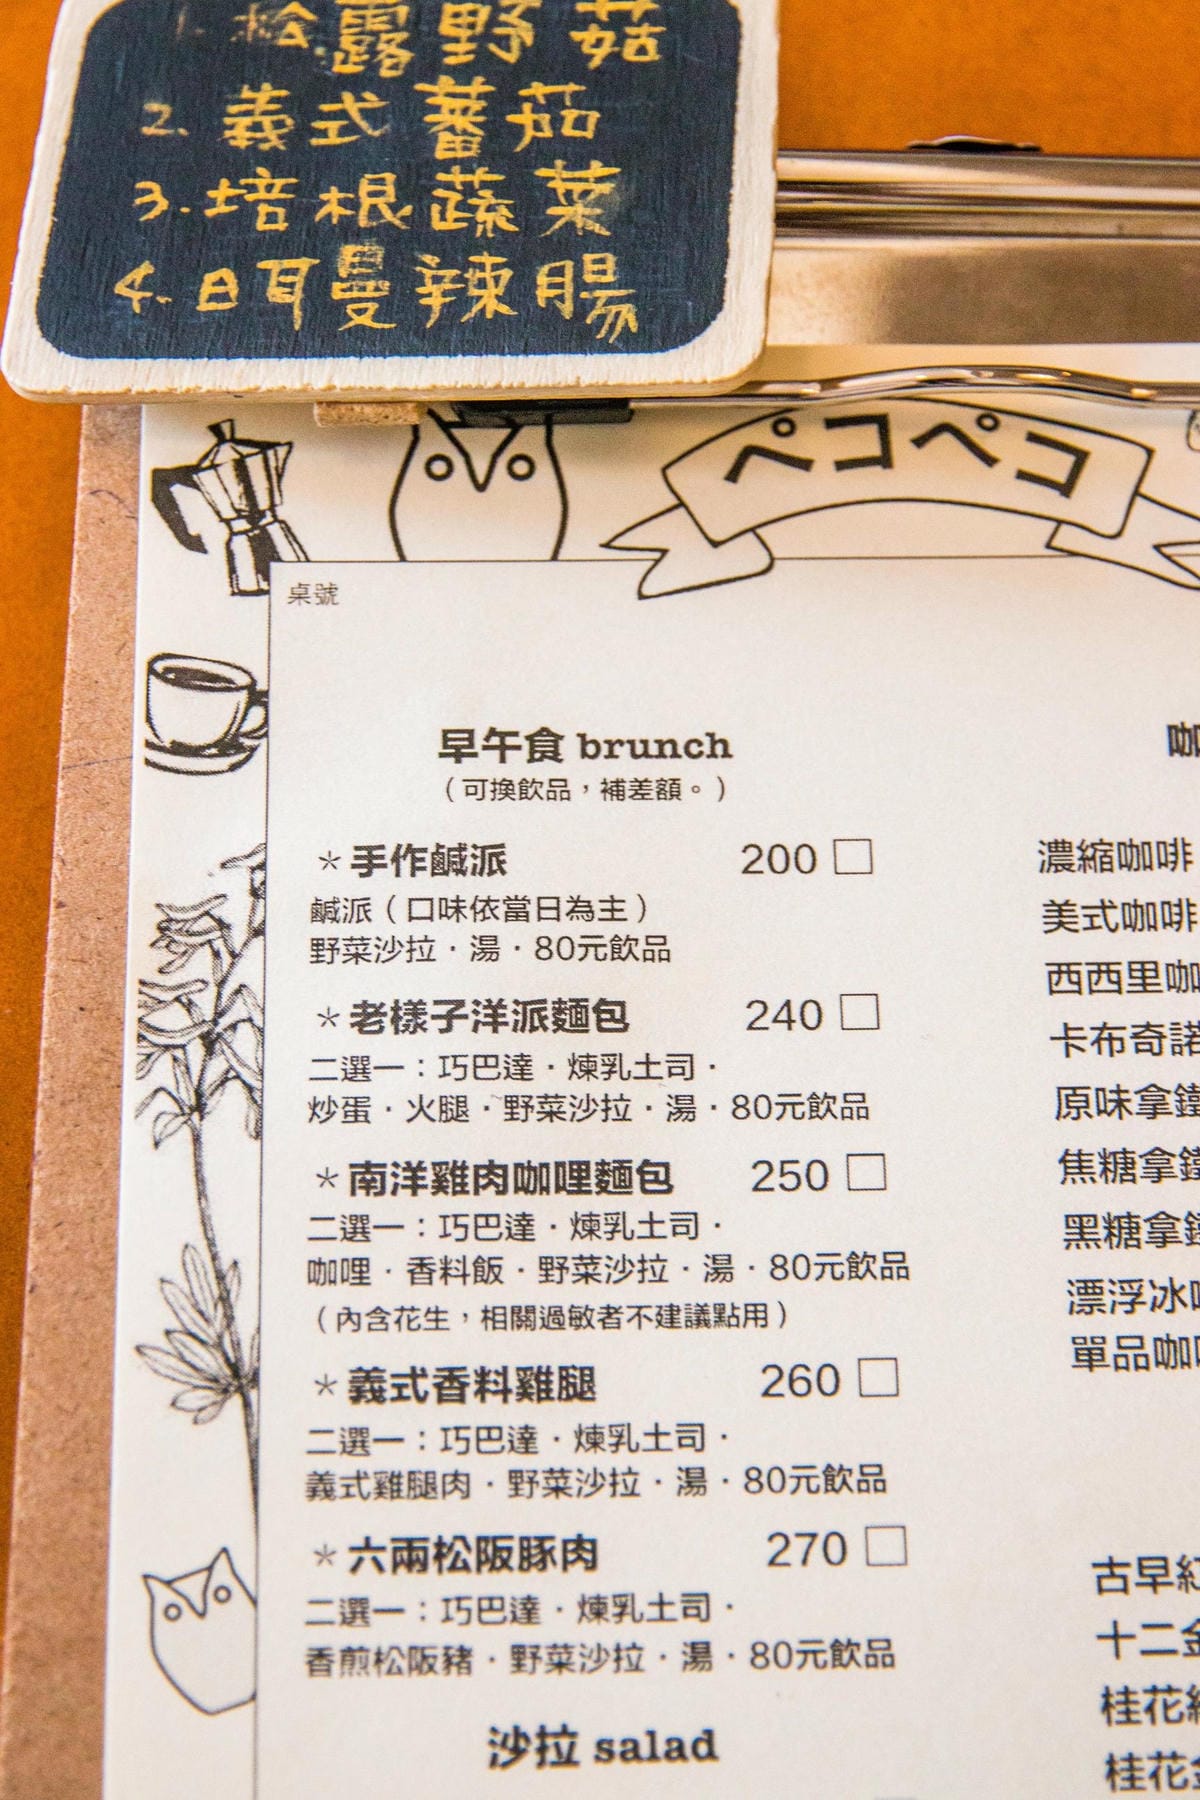 1. 松露野菇
2. 義式蕃茄
3. 培根蔬菜
4. 日耳曼辣腸
ペコペコ
桌號
早午食 brunch
（可換飲品，補差額。）
＊手作鹹派 200 □
鹹派（口味依當日為主）
野菜沙拉．湯．80元飲品
＊老樣子洋派麵包 240 □
二選一：巧巴達．煉乳土司．
炒蛋．火腿．野菜沙拉．湯．80元飲品
＊南洋雞肉咖哩麵包 250 □
二選一：巧巴達．煉乳土司．
咖哩．香料飯．野菜沙拉．湯．80元飲品
（內含花生，相關過敏者不建議點用）
＊義式香料雞腿 260 □
二選一：巧巴達．煉乳土司．
義式雞腿肉．野菜沙拉．湯．80元飲品
＊六兩松阪豚肉 270 □
二選一：巧巴達．煉乳土司．
香煎松阪豬．野菜沙拉．湯．80元飲品
沙拉 salad
咖
濃縮咖啡
美式咖啡
西西里咖
卡布奇諾
原味拿鐵
焦糖拿鐵
黑糖拿鐵
漂浮冰咖
單品咖啡
古早紅
十二金
桂花
桂花金